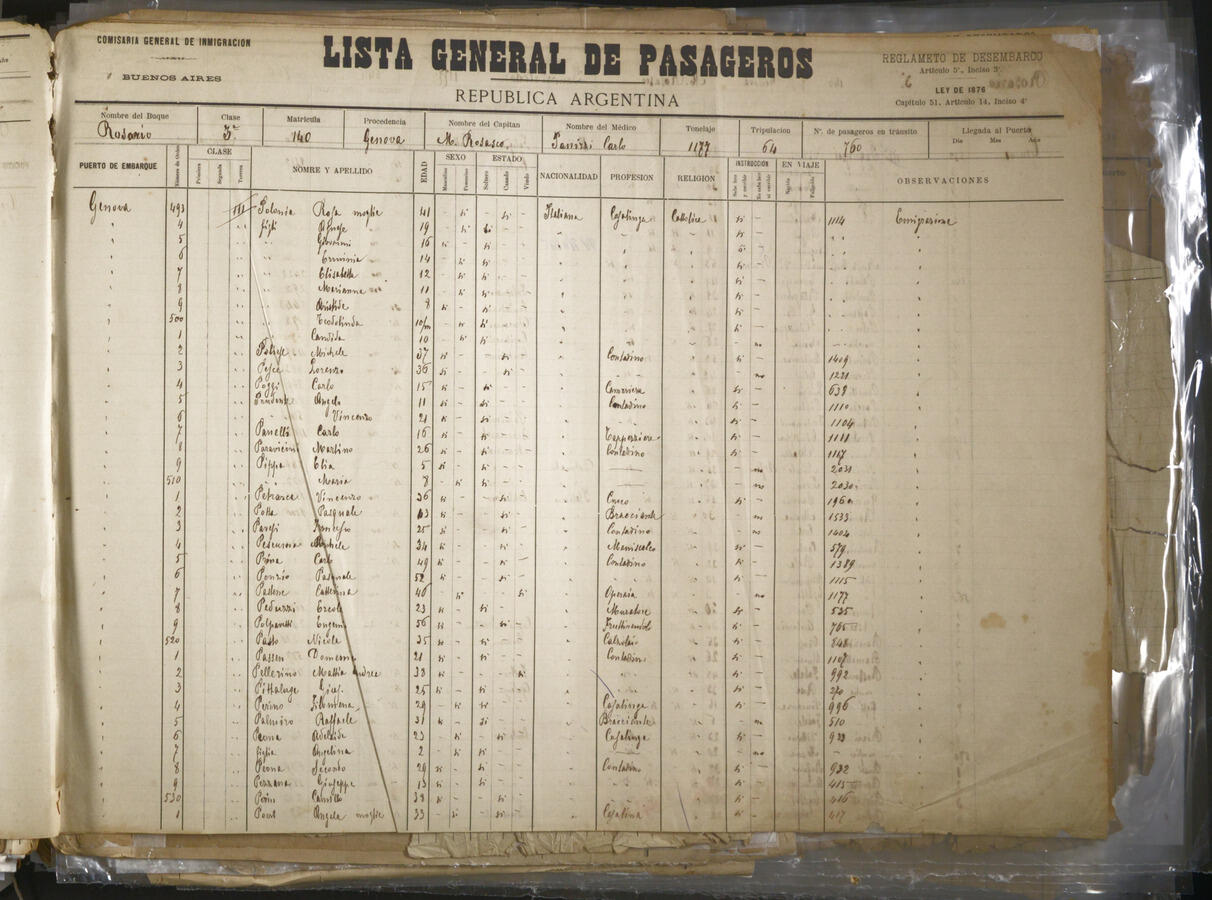 COMISARIA GENERAL DE INMIGRACION
BUENOS AIRES
LISTA GENERAL DE PASAGEROS
REPUBLICA ARGENTINA
REGLAMETO DE DESEMBARCO
Artículo 5º, Inciso 3º
LEY DE 1876
Capítulo 51, Artículo 14, Inciso 4º
Nombre del Buque Clase Matricula Procedencia Nombre del Capitan Nombre del Médico Tonelaje Tripulacion Nº. de pasageros en tránsito Llegada al Puerto
Dia Mes Año
Rosario 3ª 140 Genova M. Rosasco Carlo 1177 64 760
PUERTO DE EMBARQUE Número de Orden CLASE Primera Segunda Tercera NOMBRE Y APELLIDO EDAD SEXO Masculino Femenino ESTADO Soltero Casado Viudo NACIONALIDAD PROFESION RELIGION INSTRUCCION Sabe leer y escribir No sabe leer ni escribir EN VIAJE OBSERVACIONES
Genova 493 III Polonia Rosa moglie 41 - si - si - Italiana Casalinga Cattolica si - 1114 Emigrazione
4 figli Agnese 19 - si si
5 " Giovanni 16 si - si
6 " Erminia 14 - si si
7 " Elisabetta 12 - si si
8 " Marianna 11 - si si
9 " Aristide 8 si - si
500 " Teodolinda 10/m - si si
1 " Candida 10 - si si - no
2 Michele 37 si - - si Contadino si - 1409
3 Pesce Lorenzo 36 si - - si - no 1221
4 Poggi Carlo 15 si - si Cameriera si - 638
5 Angelo 11 si - si Contadino si - 1110
6 " Vincenzo 21 si - si si - 1104
7 Panelli Carlo 16 si - si si - 1111
8 Paravicini Martino 26 si - si Contadino si - 1167
9 Pippa Elia 5 si - si - no 2031
510 " Maria 8 - si si - no 2030
1 Petrasca Vincenzo 36 si - - si Cuoco si - 1960
2 Potta Pasquale 63 si - - si Bracciante - no 1533
3 25 si - - si Contadino - no 1404
4 Michele 34 si - - si Maniscalco si - 579
5 Carlo 49 si - - si Contadino si - 1389
6 Ponzio Pasquale 52 si - - si 1115
7 Pastene Catterina 40 - si - - si Operaia - no 1177
8 Peduzzi Ercole 23 si - si Muratore si - 535
9 Polpanetti Eugenio 56 si - - si Fruttivendolo si - 765
520 Pasto Nicola 35 si - si Calzolaio si - 848
1 Passeri Domenico 21 si - si Contadino si -
2 Pellerino Mattia Andrea 38 si - - - si si - 992
3 Pittaluga Gius. 25 si - si si - 270
4 Perino Filomena 29 - si si Casalinga si - 996
5 Palmiro Raffaele 31 si - si Bracciante - no 510
6 Peona Adelaide 23 - si - si Casalinga si - 923
7 figlia Angelina 2 - si si - no -
8 Peona Secondo 29 si - si Contadino si - 932
9 Pezzana Giuseppe 13 si - si si - 415
530 Camillo 39 si - - si si - 416
1 Angela moglie 33 - si - si Casalina si - 417